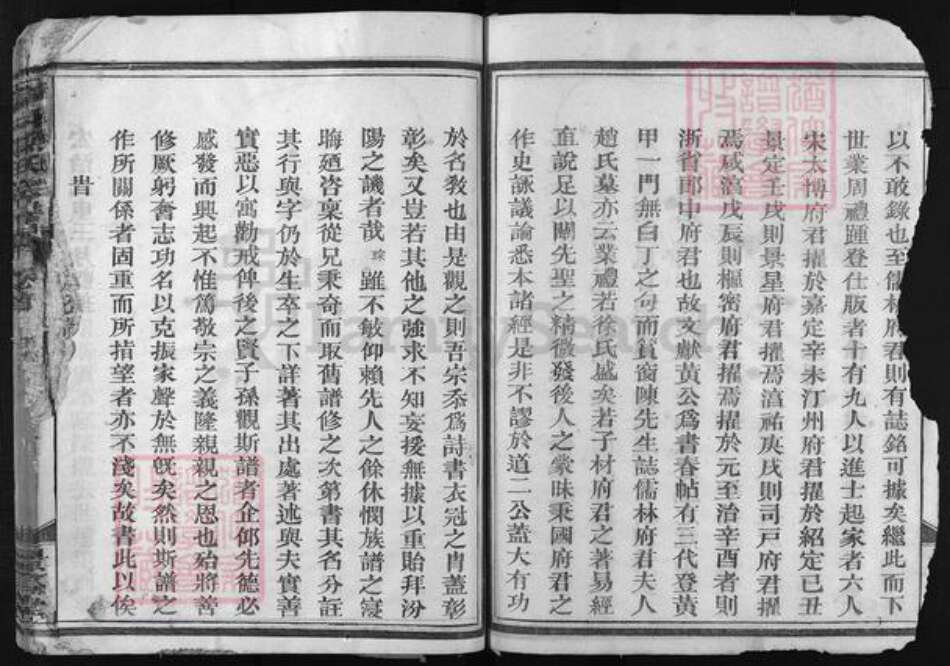 以不敢錄也至儒林府君則有誌銘可據矣繼此而下
世業周禮踵登仕版者十有九人以進士起家者六人
宋太博府君擢於嘉定辛未汀州府君擢於紹定己丑
景定壬戌則景星府君擢焉淳祐庚戌則司戸府君擢
焉咸淳戊辰則樞密府君擢焉擢於元至治辛酉者則
浙省郎中府君也故文獻黃公爲書春帖有三代登黃
甲一門無白丁之句而貿窗陳先生誌儒林府君夫人
趙氏墓亦云業禮若徐氏盛矣若子材府君之著易經
直說足以闡先聖之精微發後人之蒙昧秉國府君之
作史詠議論悉本諸經是非不謬於道二公蓋大有功
於名敎也由是觀之則吾宗忝爲詩書衣冠之胄蓋彰
彰矣又豈若其他之強求不知妄援無據以重貽拜汾
陽之譏者哉 雖不敏仰賴先人之餘休憫族譜之寖
晦廼咨稟從兄秉奇而取舊譜修之次第書其名分註
其行與字仍於生卒之下詳著其出處著述與夫實善
實惡以寓勸戒俾後之賢子孫觀斯譜者企仰先德必
感發而興起不惟篤敬宗之義隆親親之恩也殆將善
修厥躬奮志功名以克振家聲於無旣矣然則斯譜之
作所關係者固重而所措望者亦不淺矣故書此以俟
昔
FamilySearch